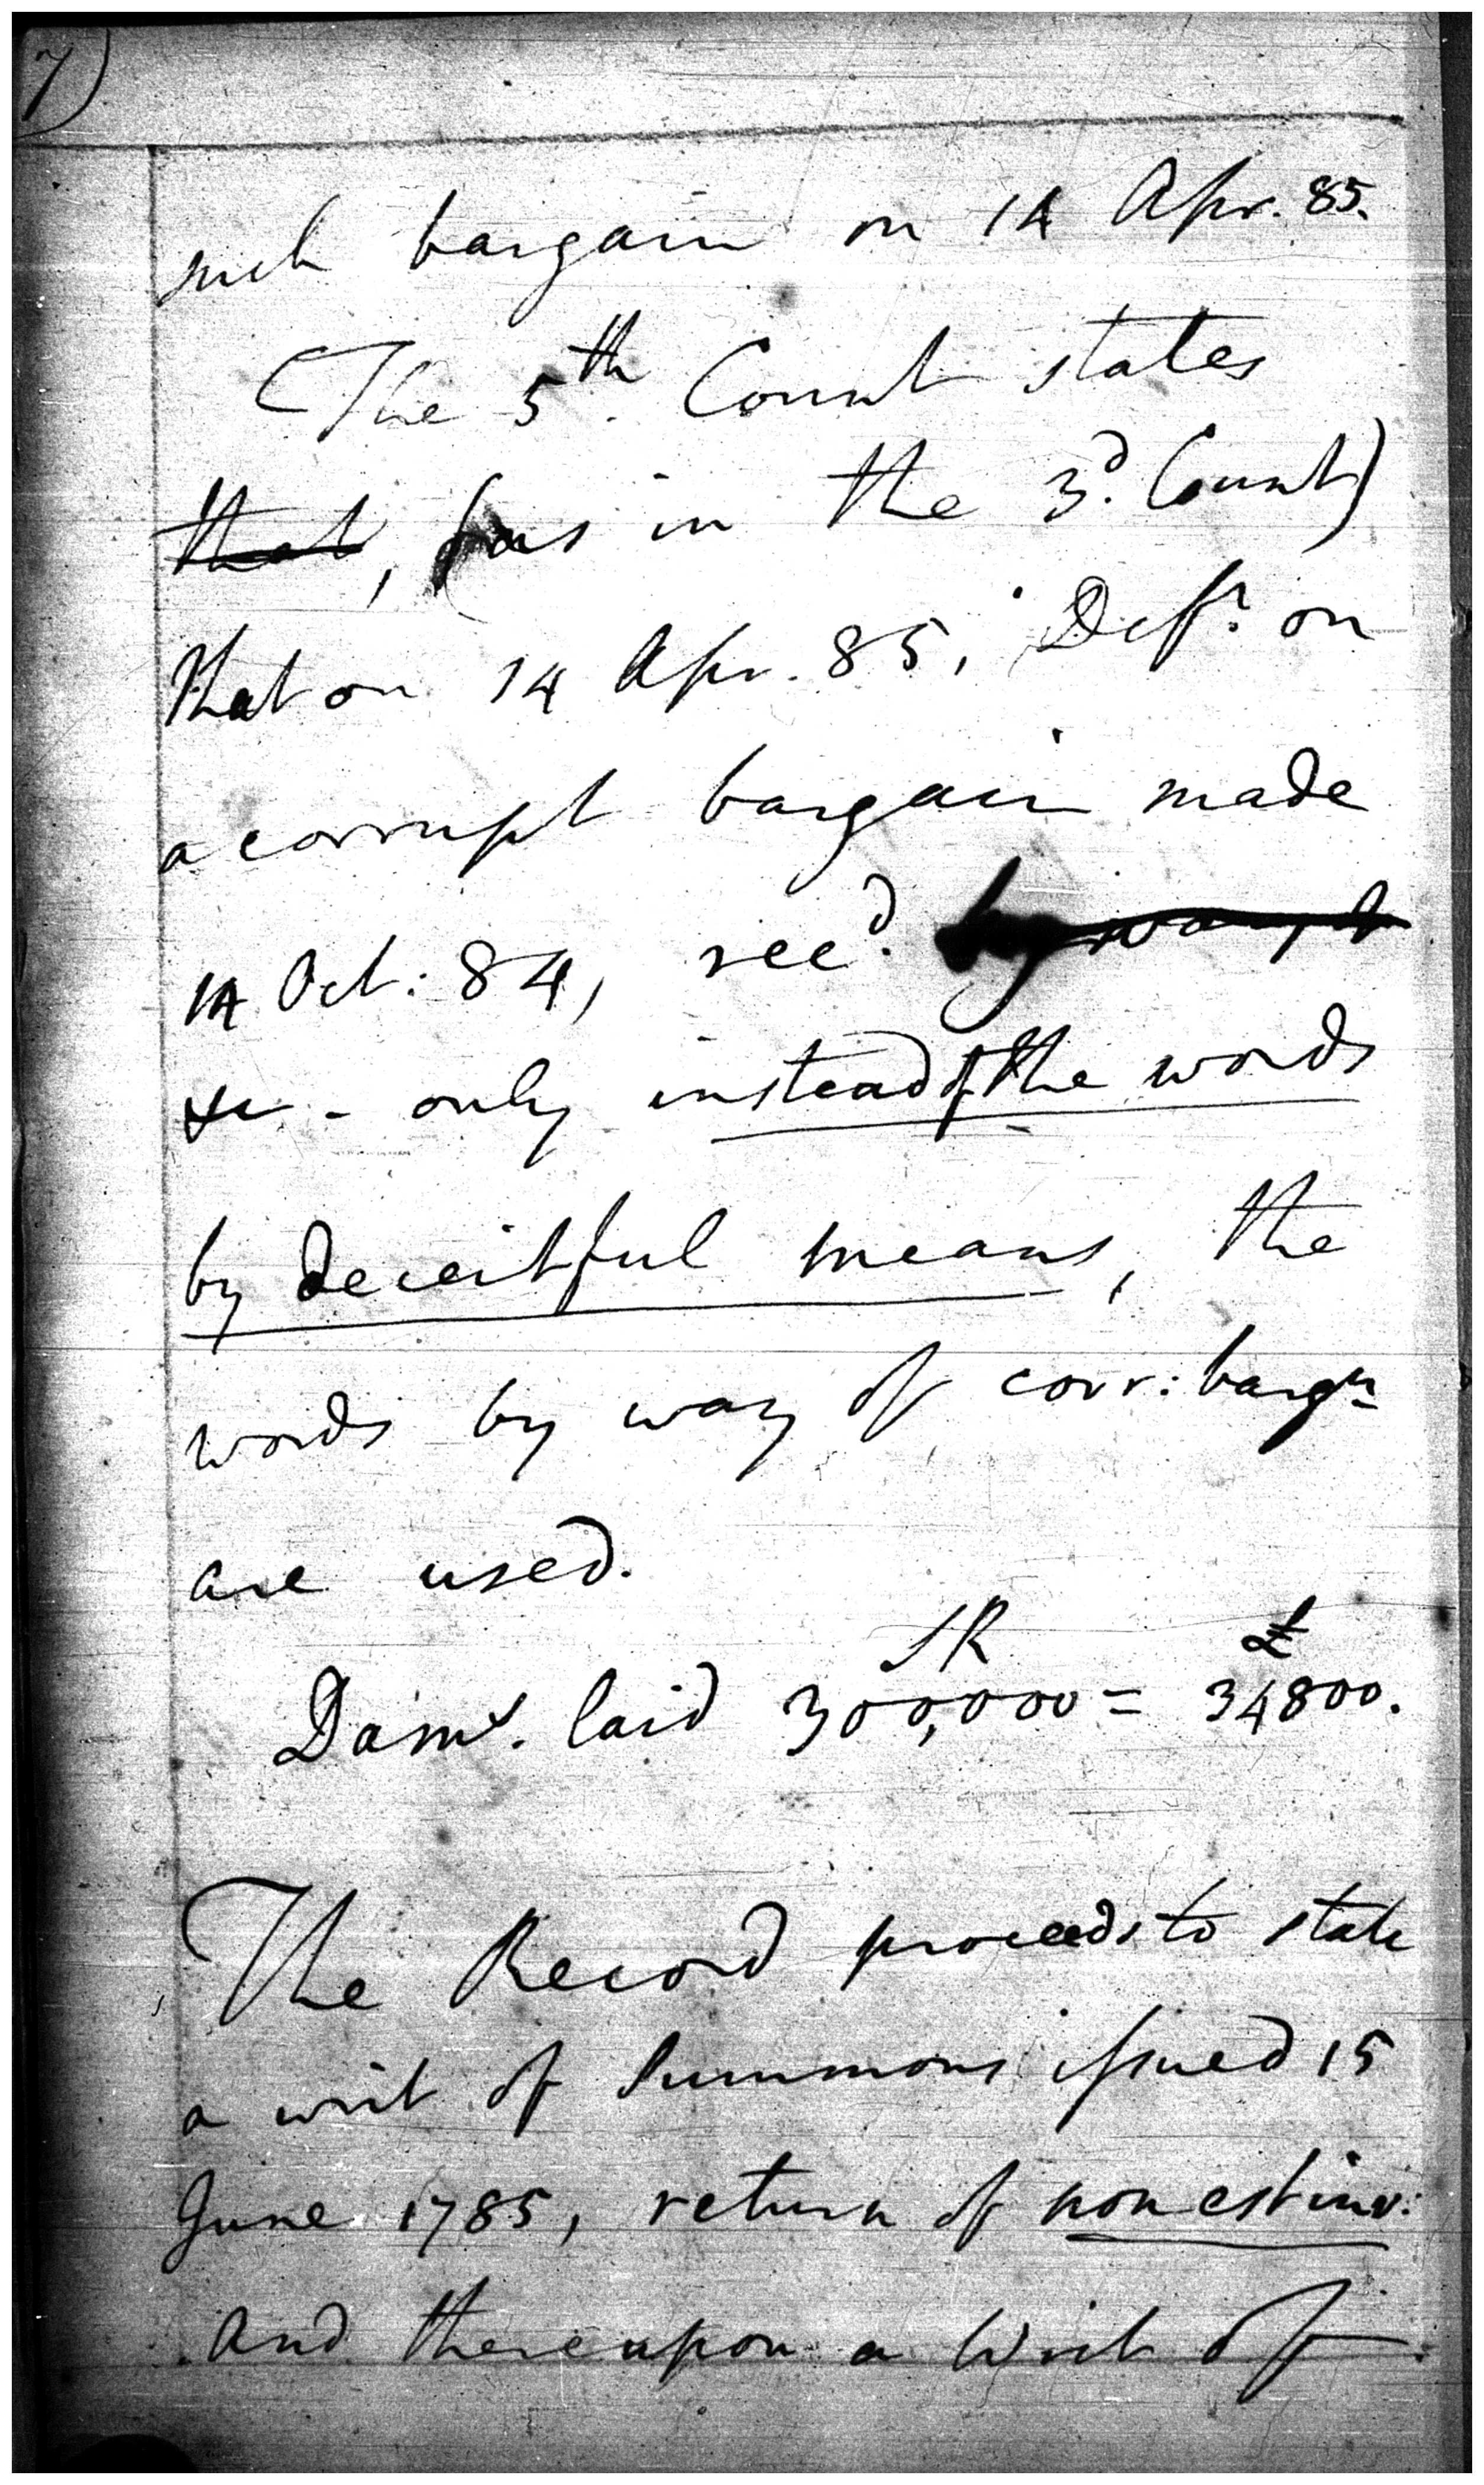 7)
such bargain on 14 Apr. 85.
The 5th. Count states
that, (as in the 3d. Count)
that on 14 Apr. 85, Deft. on
a corrupt bargain made
14 Oct: 84, recd. by way of
&c - only instead of the words
by deceitful means, the
words by way of corr: bargn
are used.
SR £
Dams. laid 300,000 = 34800.
The Record proceeds to state
a writ of Summons issued 15
June 1785, return of non est inv:
and thereupon a Writ of